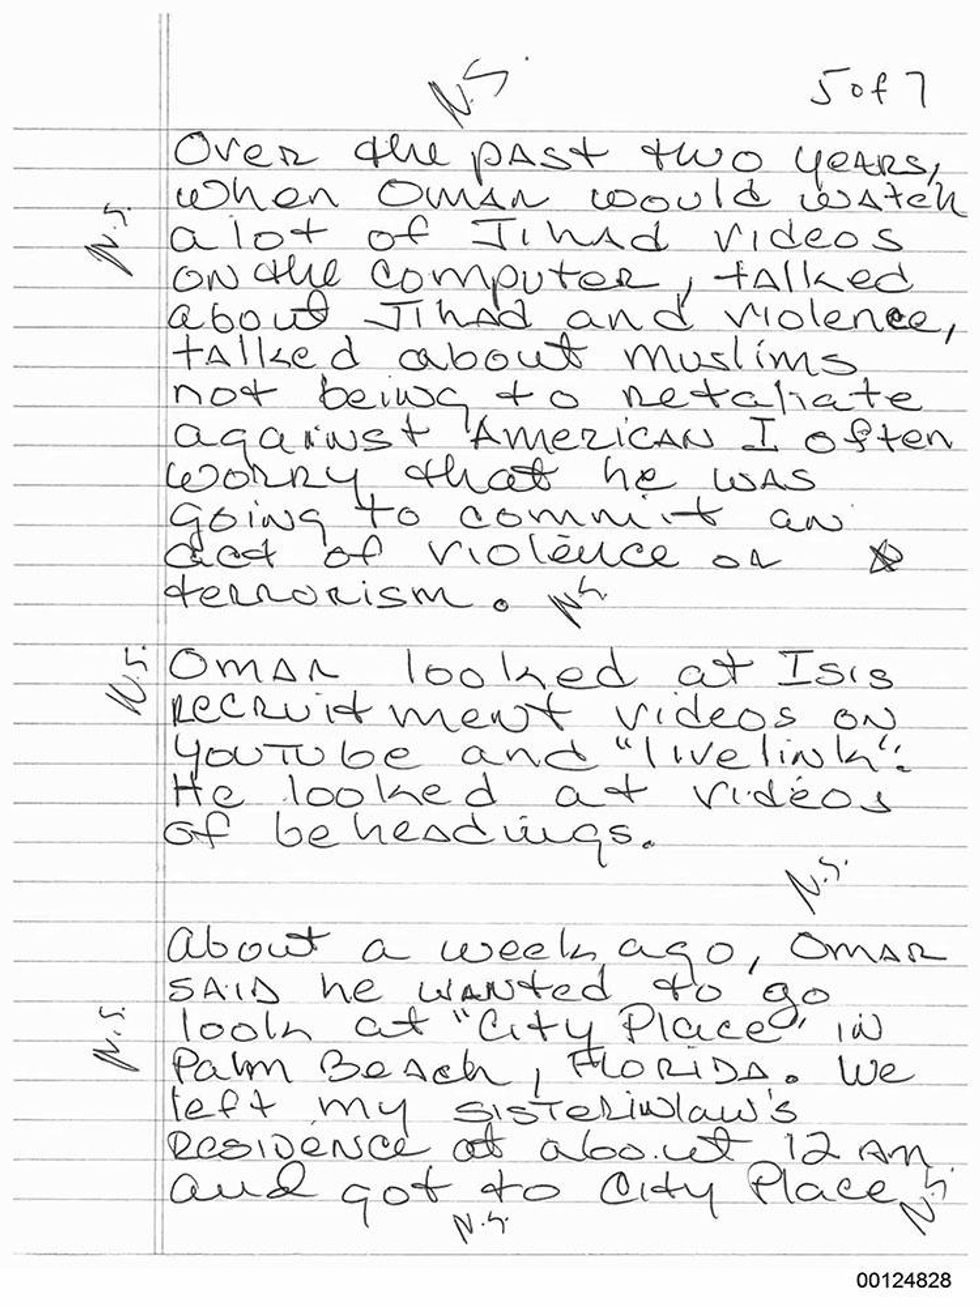 N.S.
5 of 7
Over the past two years,
when Omar would watch
N.S.
a lot of Jihad videos
on the computer, talked
about Jihad and violence,
talked about muslims
not being to retaliate
against American I often
worry that he was
going to commit an
act of violence or
terrorism. N.S.
N.S.
Omar looked at Isis
recruitment videos on
YouTube and "livelink".
He looked at videos
of beheadings.
N.S.
About a week ago, Omar
said he wanted to go
look at "City Place" in
N.S.
Palm Beach, Florida. We
left my sisterinlaw's
residence at about 12 Am
and got to City Place
N.S.
N.S.
00124828